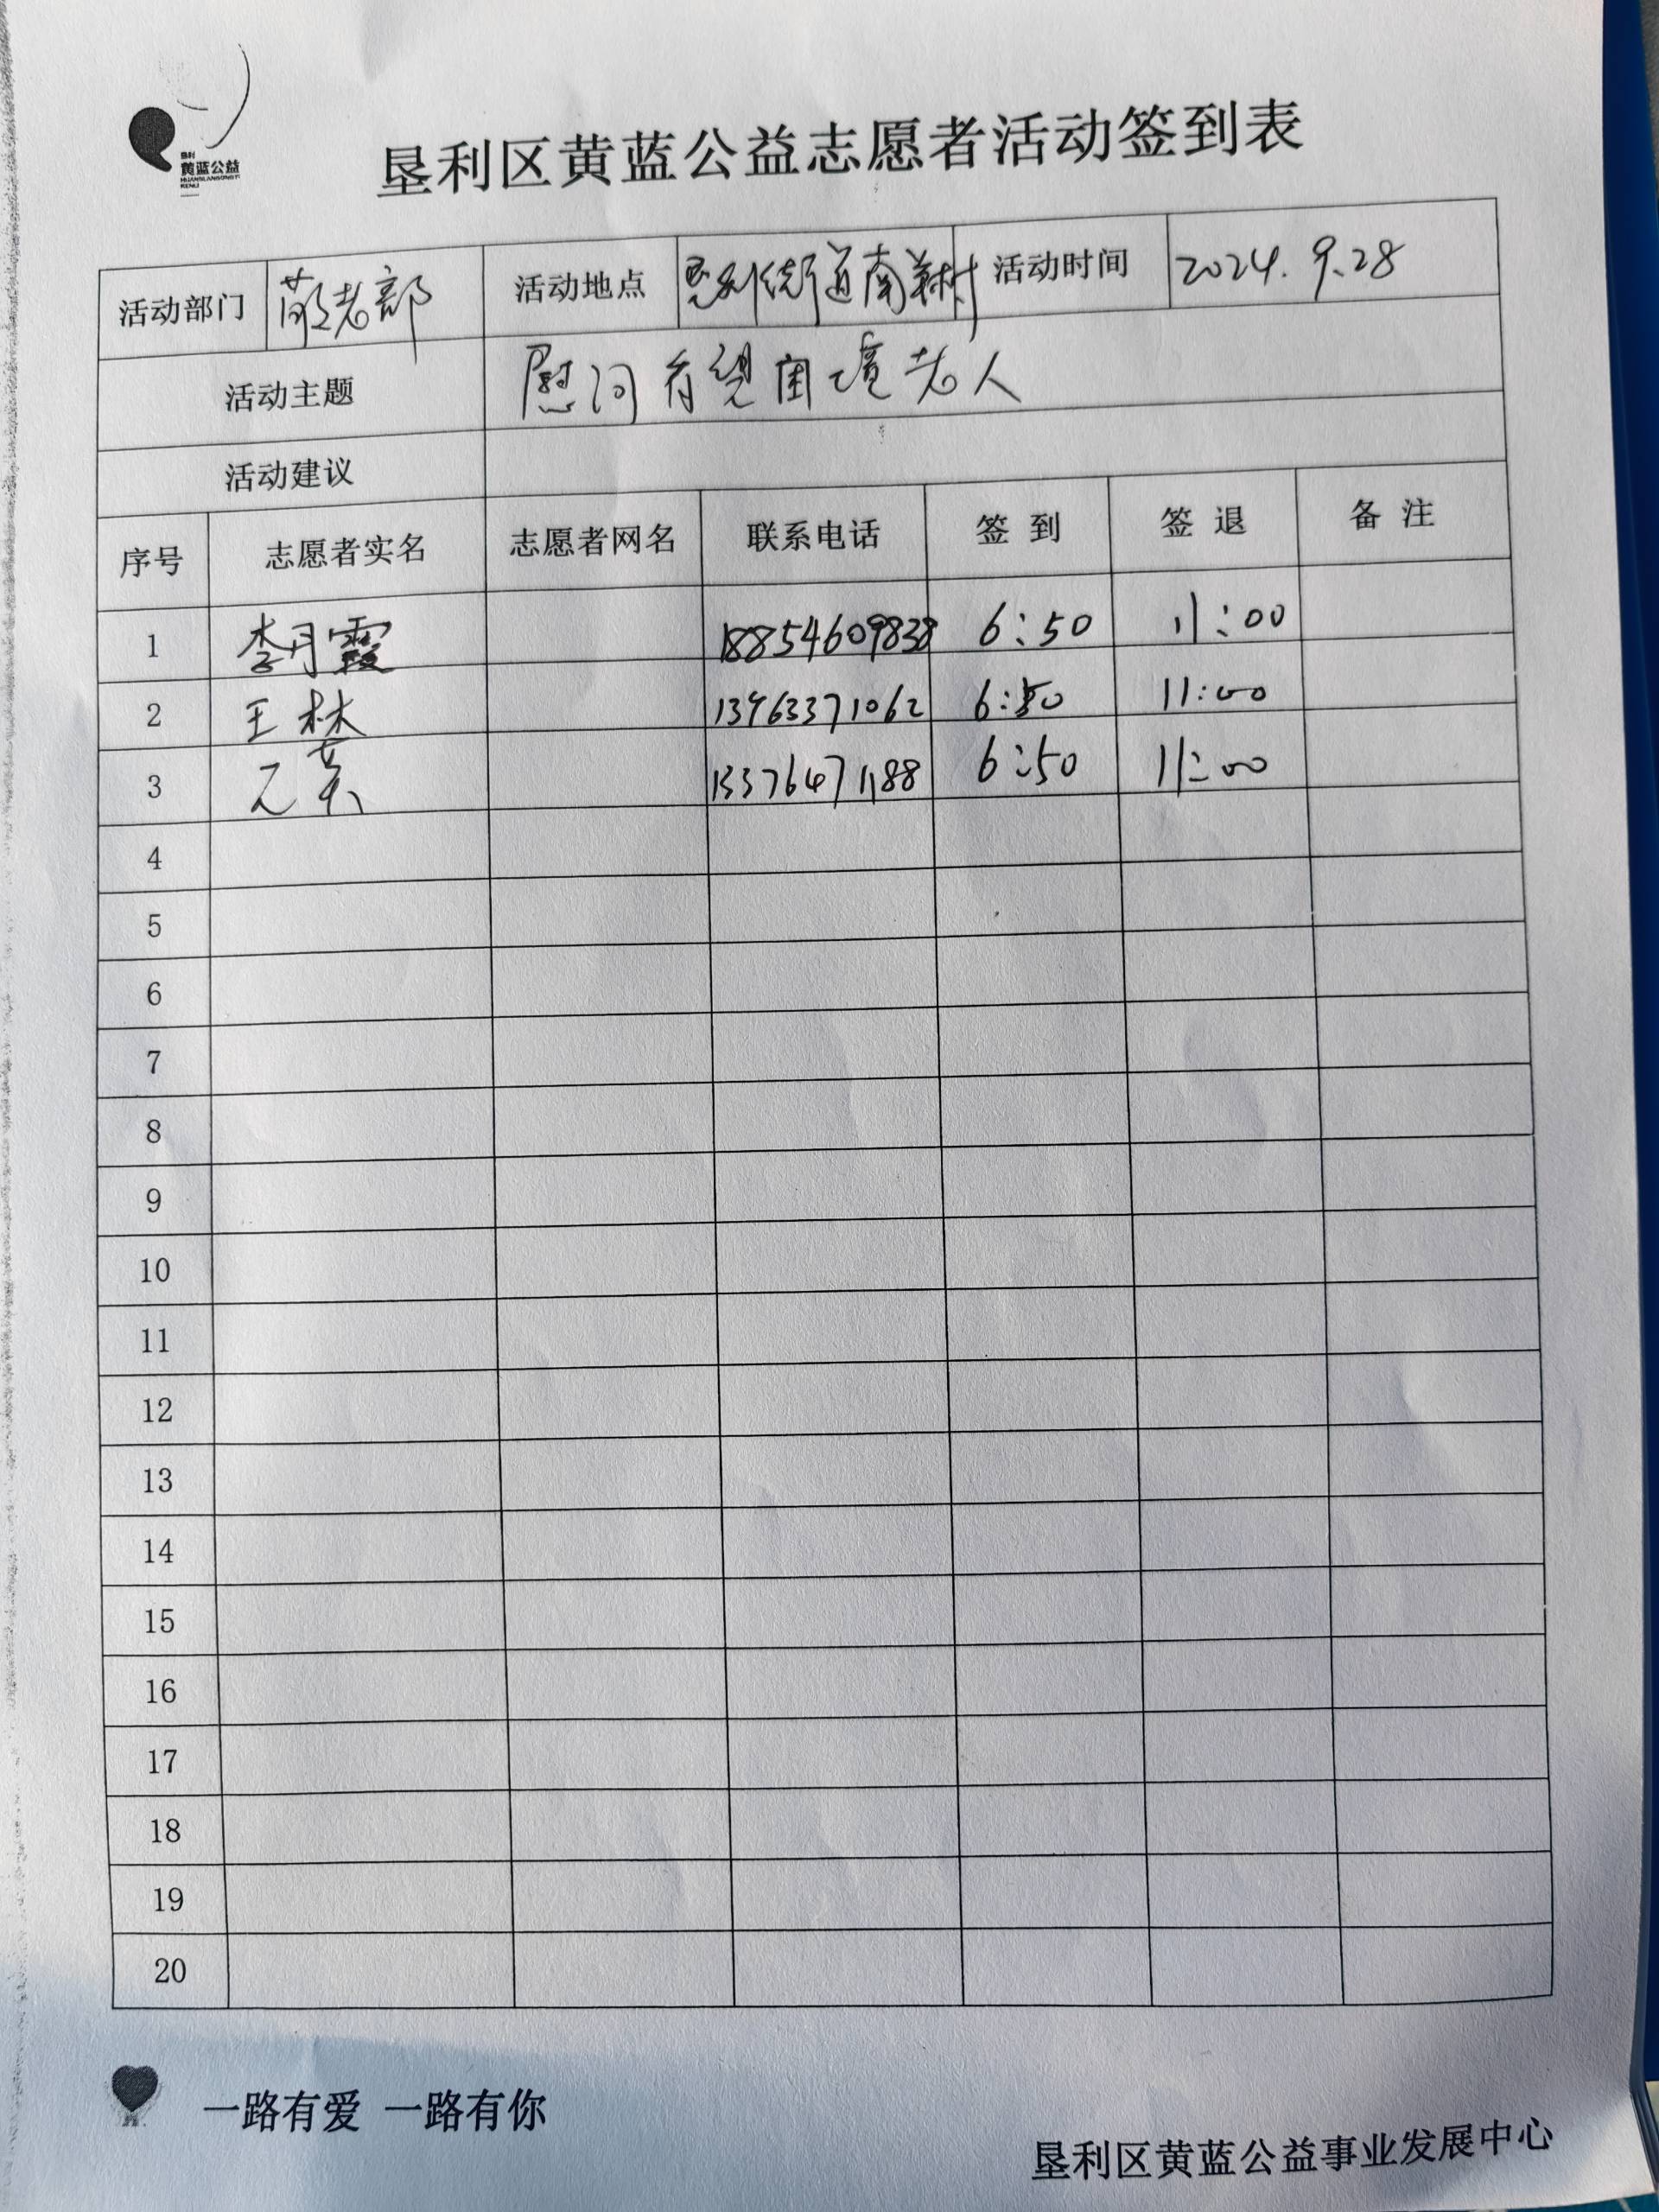 垦利
黄蓝公益
HUANGLANGONGYI
KENLI
垦利区黄蓝公益志愿者活动签到表
活动部门 敬老部 活动地点 垦利街道南羊村 活动时间 2024.9.28
活动主题 慰问看望困境老人
活动建议
序号 志愿者实名 志愿者网名 联系电话 签到 签退 备注
1 李月霞 18854609838 6:50 11:00
2 王林 13963371062 6:50 11:00
3 13376471188 6:50 11:00
4
5
6
7
8
9
10
11
12
13
14
15
16
17
18
19
20
一路有爱 一路有你
垦利区黄蓝公益事业发展中心